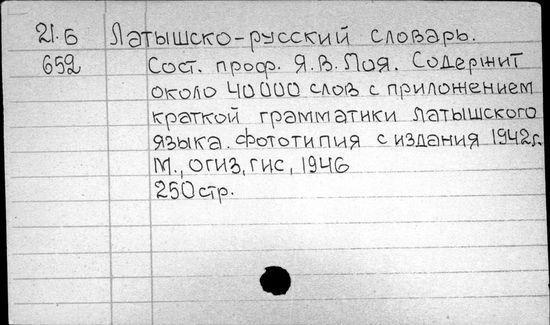 21.6 Латышско-русский словарь.
652 Сост. проф. Я.В. Лоя. Содержит
около 40000 слов с приложением
краткой грамматики латышского
языка. Фототипия с издания 1942г.
М., ОГИЗ, ГИС, 1946
250 стр.